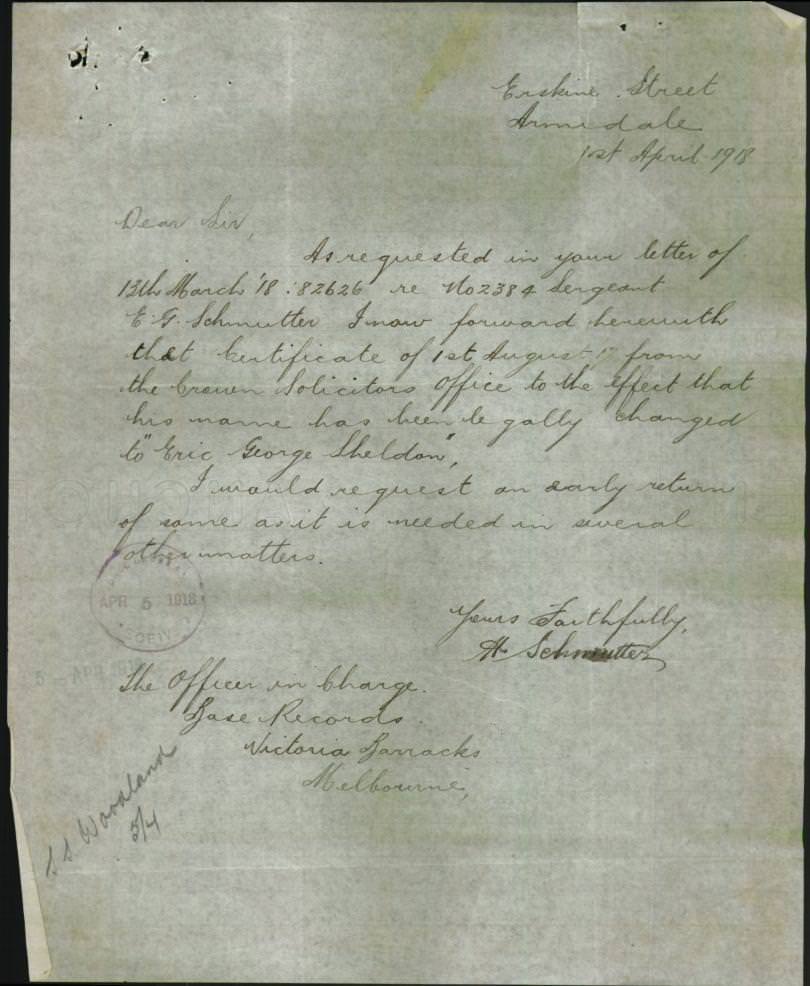 Erskine Street
Armidale
1st April 1918
Dear Sir,
As requested in your letter of
13th March '18 : 82626 re No 2384 Sergeant
E. G. Schmutter I now forward herewith
that Certificate of 1st August 17 from
the Crown Solicitors Office to the effect that
his name has been legally changed
to "Eric George Sheldon",
I would request an early return
of same as it is needed in several
other matters.
APR 5 1918
5 - APR 1918
Yours Faithfully,
H Schmutter
The Officer in Charge.
Base Records.
Victoria Barracks
Melbourne,
S S Woodland
5/4